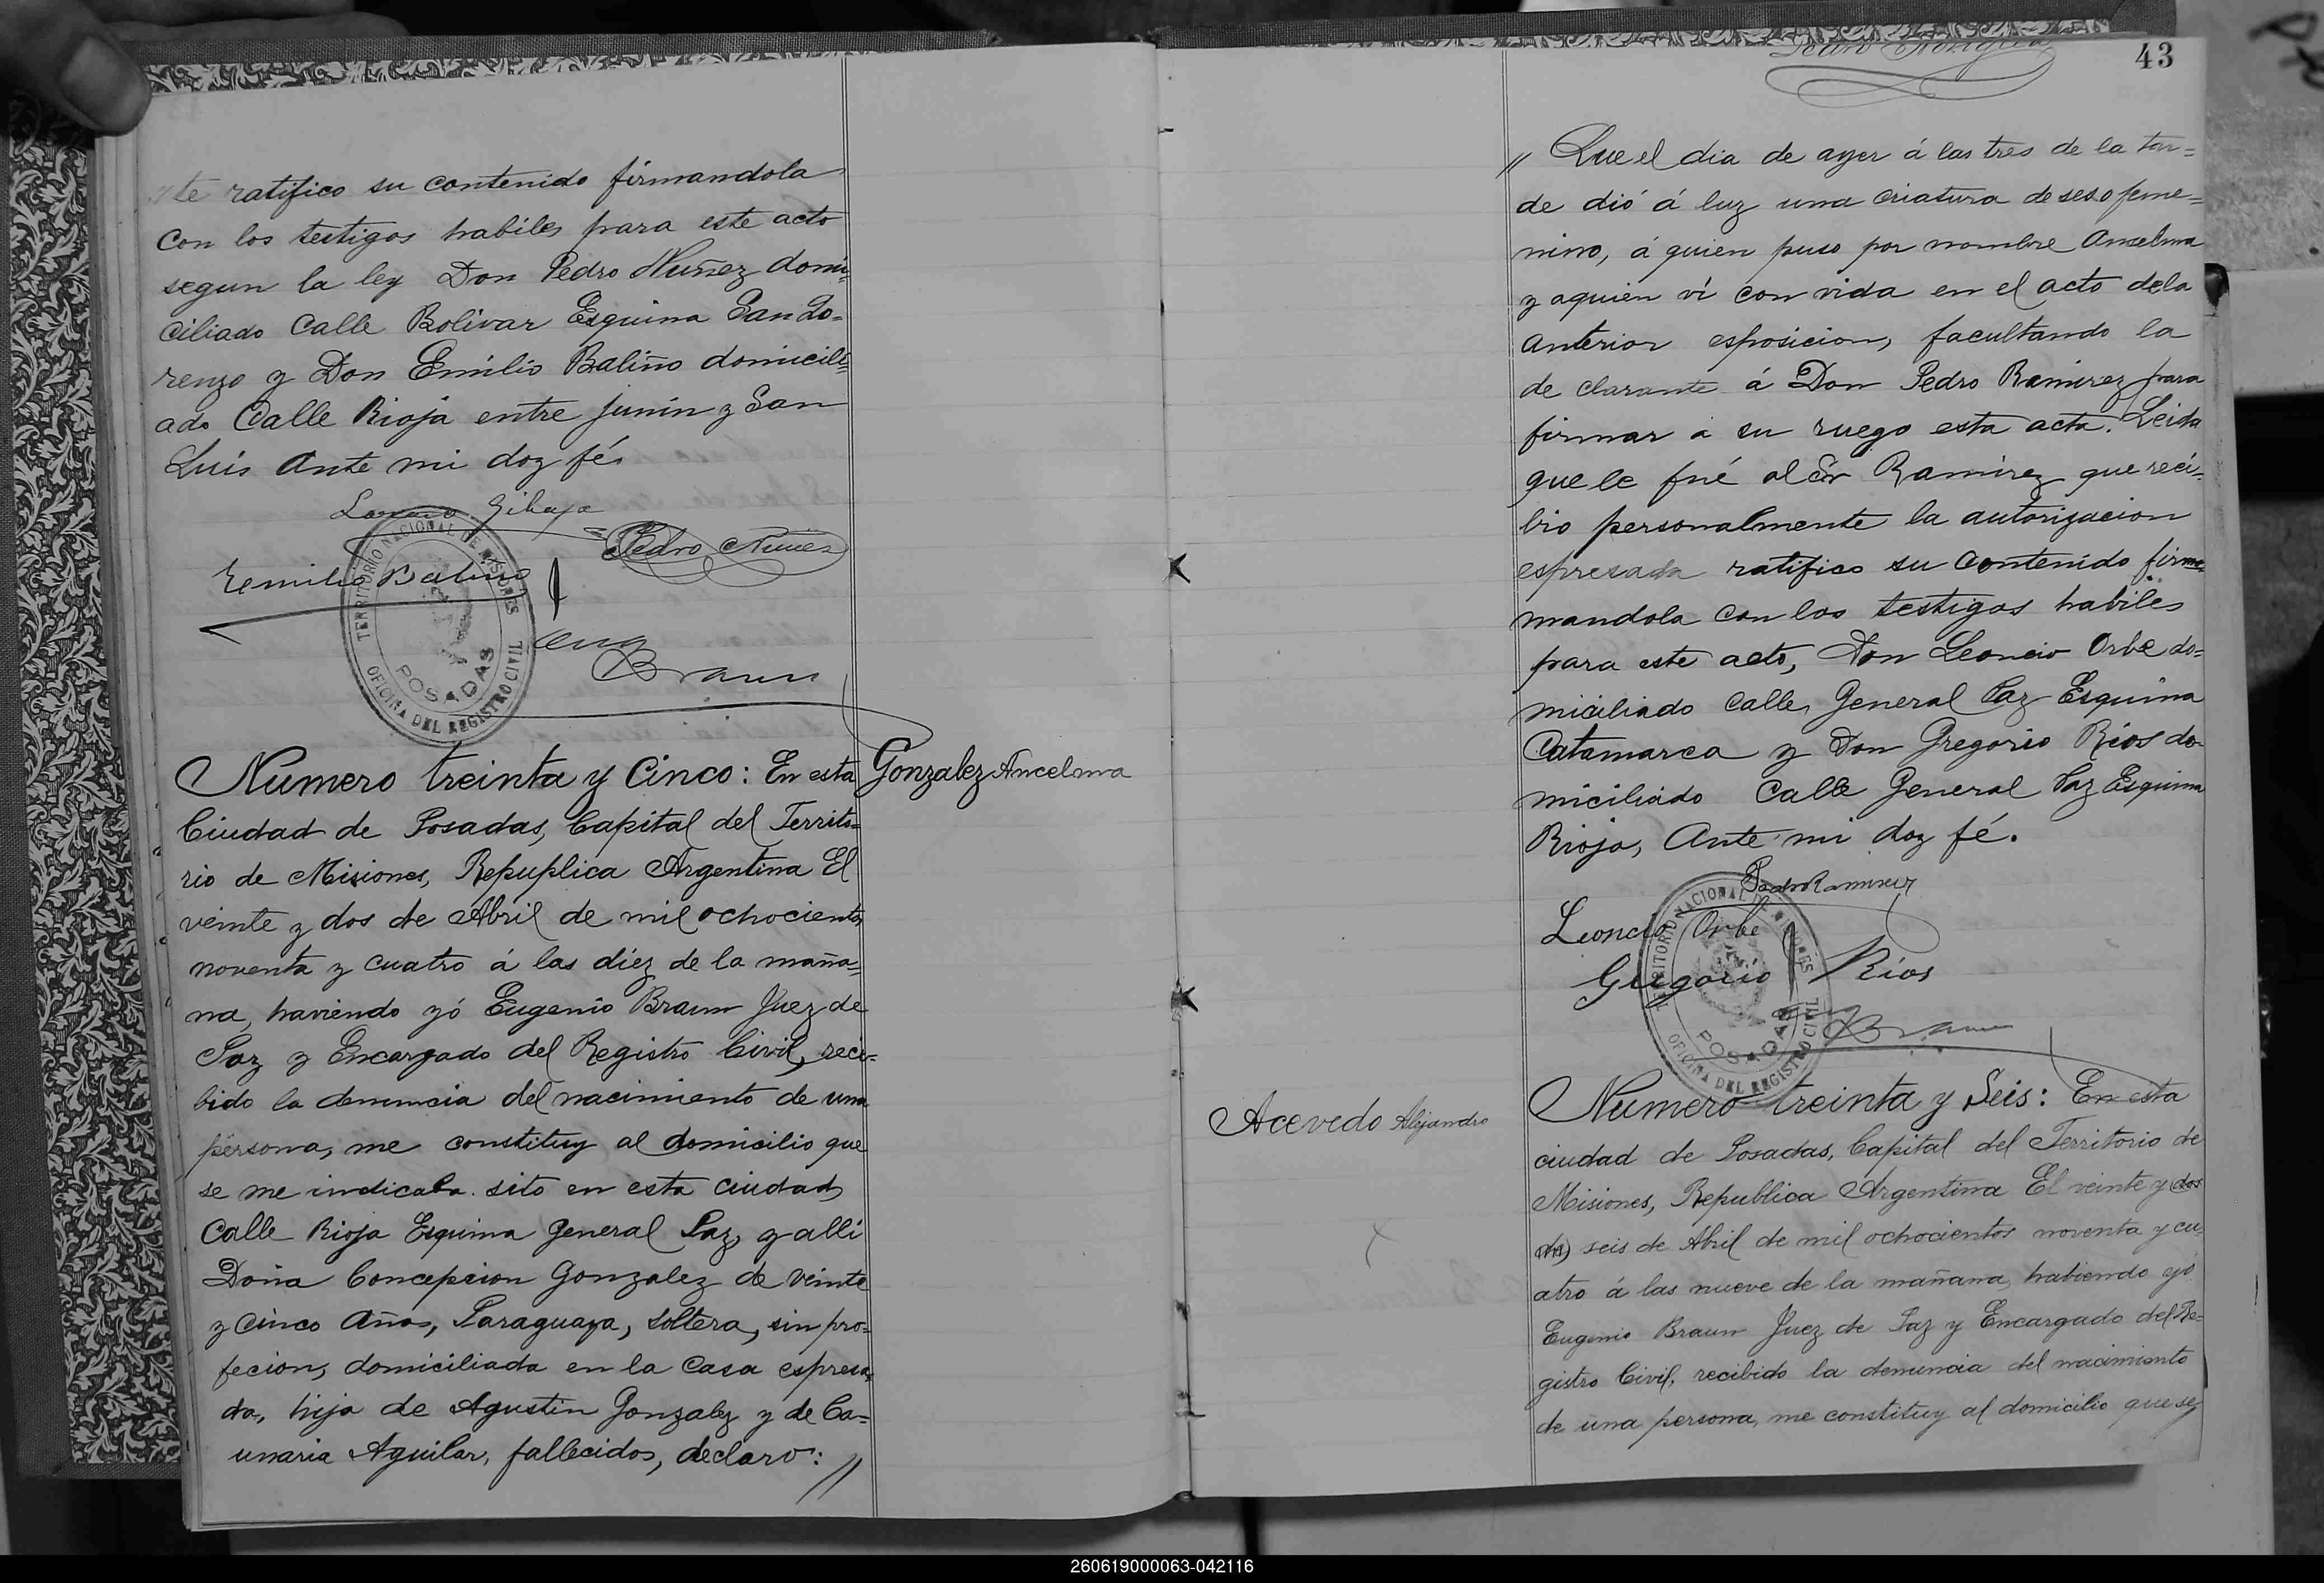 te ratifico su contenido firmandola
con los testigos habiles para este acto
segun la ley Don Pedro Nuñez domi-
ciliado Calle Bolivar Esquina San Lo=
renzo y Don Emilio Baliño domicili=
ado Calle Rioja entre Junin y San
Luis Ante mi doy fé.
Gibaja
Pedro Nuñez
Emilio Baliño
TERRITORIO NACIONAL DE MISIONES
POSADAS
OFICINA DEL REGISTRO CIVIL
Eug Braun
Numero treinta y Cinco: En esta
Gonzalez Ancelma
Ciudad de Posadas, Capital del Territo=
rio de Misiones, Repuplica Argentina El
veinte y dos de Abril de mil ochocientos
noventa y cuatro á las diez de la maña=
na, haviendo yó Eugenio Braun Juez de
Paz y Encargado del Registro Civil, reci=
bido la denuncia del nacimiento de una
persona, me constituy al domicilio que
se me indicaba sito en esta ciudad
Calle Rioja Esquina General Paz, y alli
Doña Concepcion Gonzalez de veinte
y cinco Años, Paraguaya, Soltera, sin pro=
fecion, domiciliada en la Casa espresa=
da, hija de Agustin Gonzalez y de Ca=
unaria Aguilar, fallecidos, declaro: //
43
// Que el dia de ayer á las tres de la tar=
de dió á luz una criatura de seso feme=
nino, á quien puso por nombre Anselma
y aquien ví con vida en el acto dela
anterior esposicion, facultando la
de clarante á Don Pedro Ramirez para
firmar a su ruego esta acta. Leida
que le fné al Sr Ramirez que reci=
bio personalmente la autorizacion
espresada ratifico su contenido firme
mandola con los testigos habiles
para este acto, Don Leoncio Orbe do=
miciliado Calle General Paz Esquina
Catamarca y Don Gregorio Rios do-
miciliado Calle General Paz Esquina
Rioja, Ante mi doy fé.
Pedro Ramirez
Leoncio Orbe
Gregorio Rios
TERRITORIO NACIONAL DE MISIONES
POSADAS
OFICINA DEL REGISTRO CIVIL
Braun
Acevedo Alejandro
Numero treinta y Seis: En esta
ciudad de Posadas, Capital del Territorio de
Misiones, Republica Argentina El veinte y (dos
seis de Abril de mil ochocientos noventa y cu
atro á las nueve de la mañana, habiendo yó
Eugenio Braun Juez de Paz y Encargado del Re=
gistro Civil, recibido la denuncia del nacimiento
de una persona, me constituy al domicilio que se
260619000063-042116